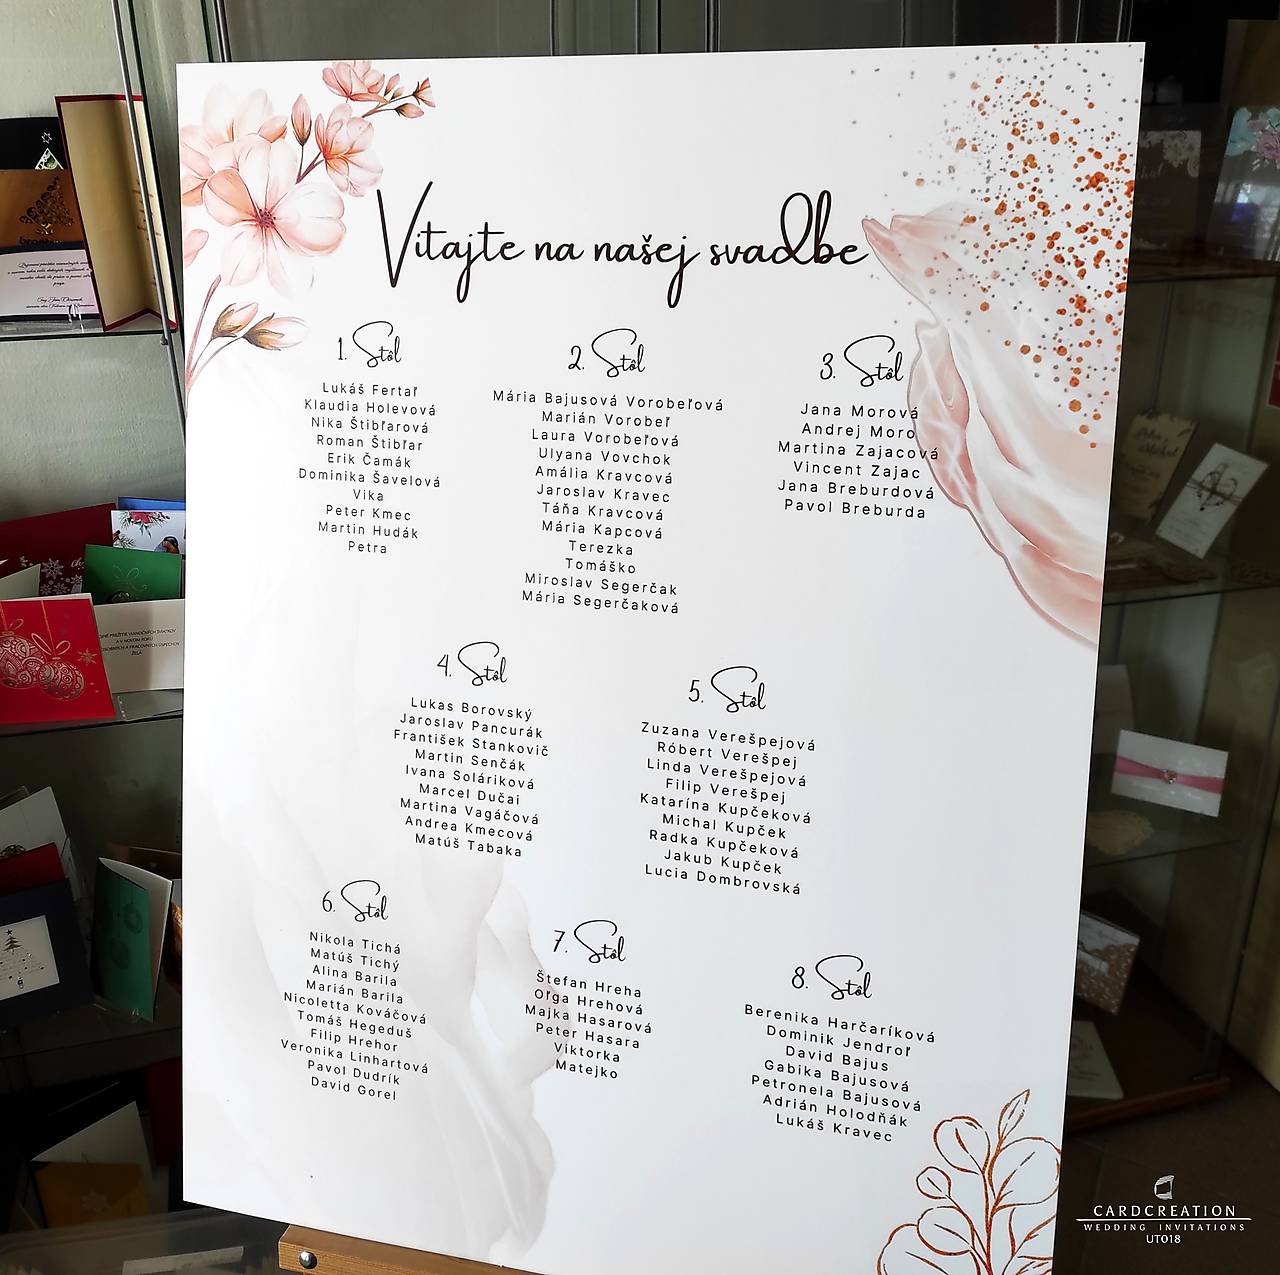 Vitajte na našej svadbe
1. Stôl
Lukáš Fertaľ
Klaudia Holevová
Nika Štibľarová
Roman Štibľar
Erik Čamák
Dominika Šavelová
Vika
Peter Kmec
Martin Hudák
Petra
2. Stôl
Mária Bajusová Vorobeľová
Marián Vorobeľ
Laura Vorobeľová
Ulyana Vovchok
Amália Kravcová
Jaroslav Kravec
Táňa Kravcová
Mária Kapcová
Terezka
Tomáško
Miroslav Segerčak
Mária Segerčaková
3. Stôl
Jana Morová
Andrej Moro
Martina Zajacová
Vincent Zajac
Jana Breburdová
Pavol Breburda
4. Stôl
Lukas Borovský
Jaroslav Pancurák
František Stankovič
Martin Senčák
Ivana Soláriková
Marcel Dučai
Martina Vagáčová
Andrea Kmecová
Matúš Tabaka
5. Stôl
Zuzana Verešpejová
Róbert Verešpej
Linda Verešpejová
Filip Verešpej
Katarína Kupčeková
Michal Kupček
Radka Kupčeková
Jakub Kupček
Lucia Dombrovská
6. Stôl
Nikola Tichá
Matúš Tichý
Alina Barila
Marián Barila
Nicoletta Kováčová
Tomáš Hegeduš
Filip Hrehor
Veronika Linhartová
Pavol Dudrík
David Gorel
7. Stôl
Štefan Hreha
Oľga Hrehová
Majka Hasarová
Peter Hasara
Viktorka
Matejko
8. Stôl
Berenika Harčaríková
Dominik Jendroľ
David Bajus
Gabika Bajusová
Petronela Bajusová
Adrián Holodňák
Lukáš Kravec
CARDCREATION
WEDDING INVITATIONS
UT018